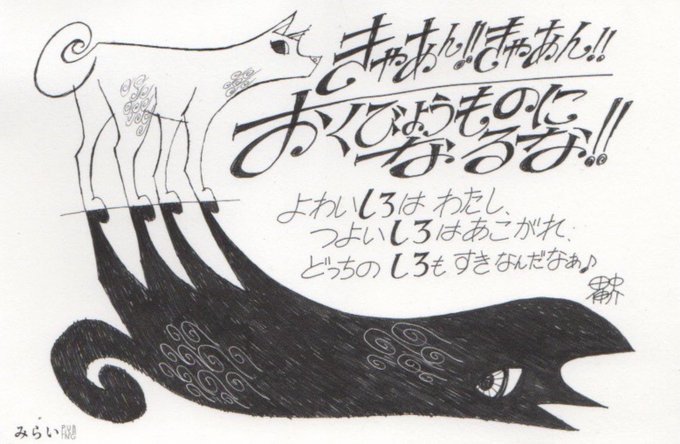 きゃあん!!きゃあん!!
おくびょうものに
なるな!!
よわいしろは わたし、
つよいしろはあこがれ、
どっちの しろも すきなんだなぁ♪
みらい